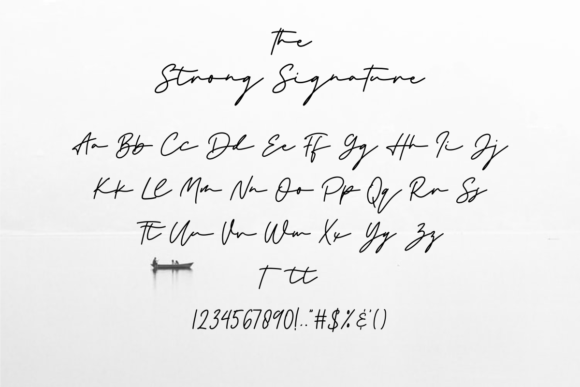 the
Strong Signature
Aa Bb Cc Dd Ee Ff Gg Hh Ii Jj
Kk Ll Mm Nn Oo Pp Qq Rr Ss
Tt Uu Vv Ww Xx Yy Zz
T tt
1234567890!..”#$%&'()